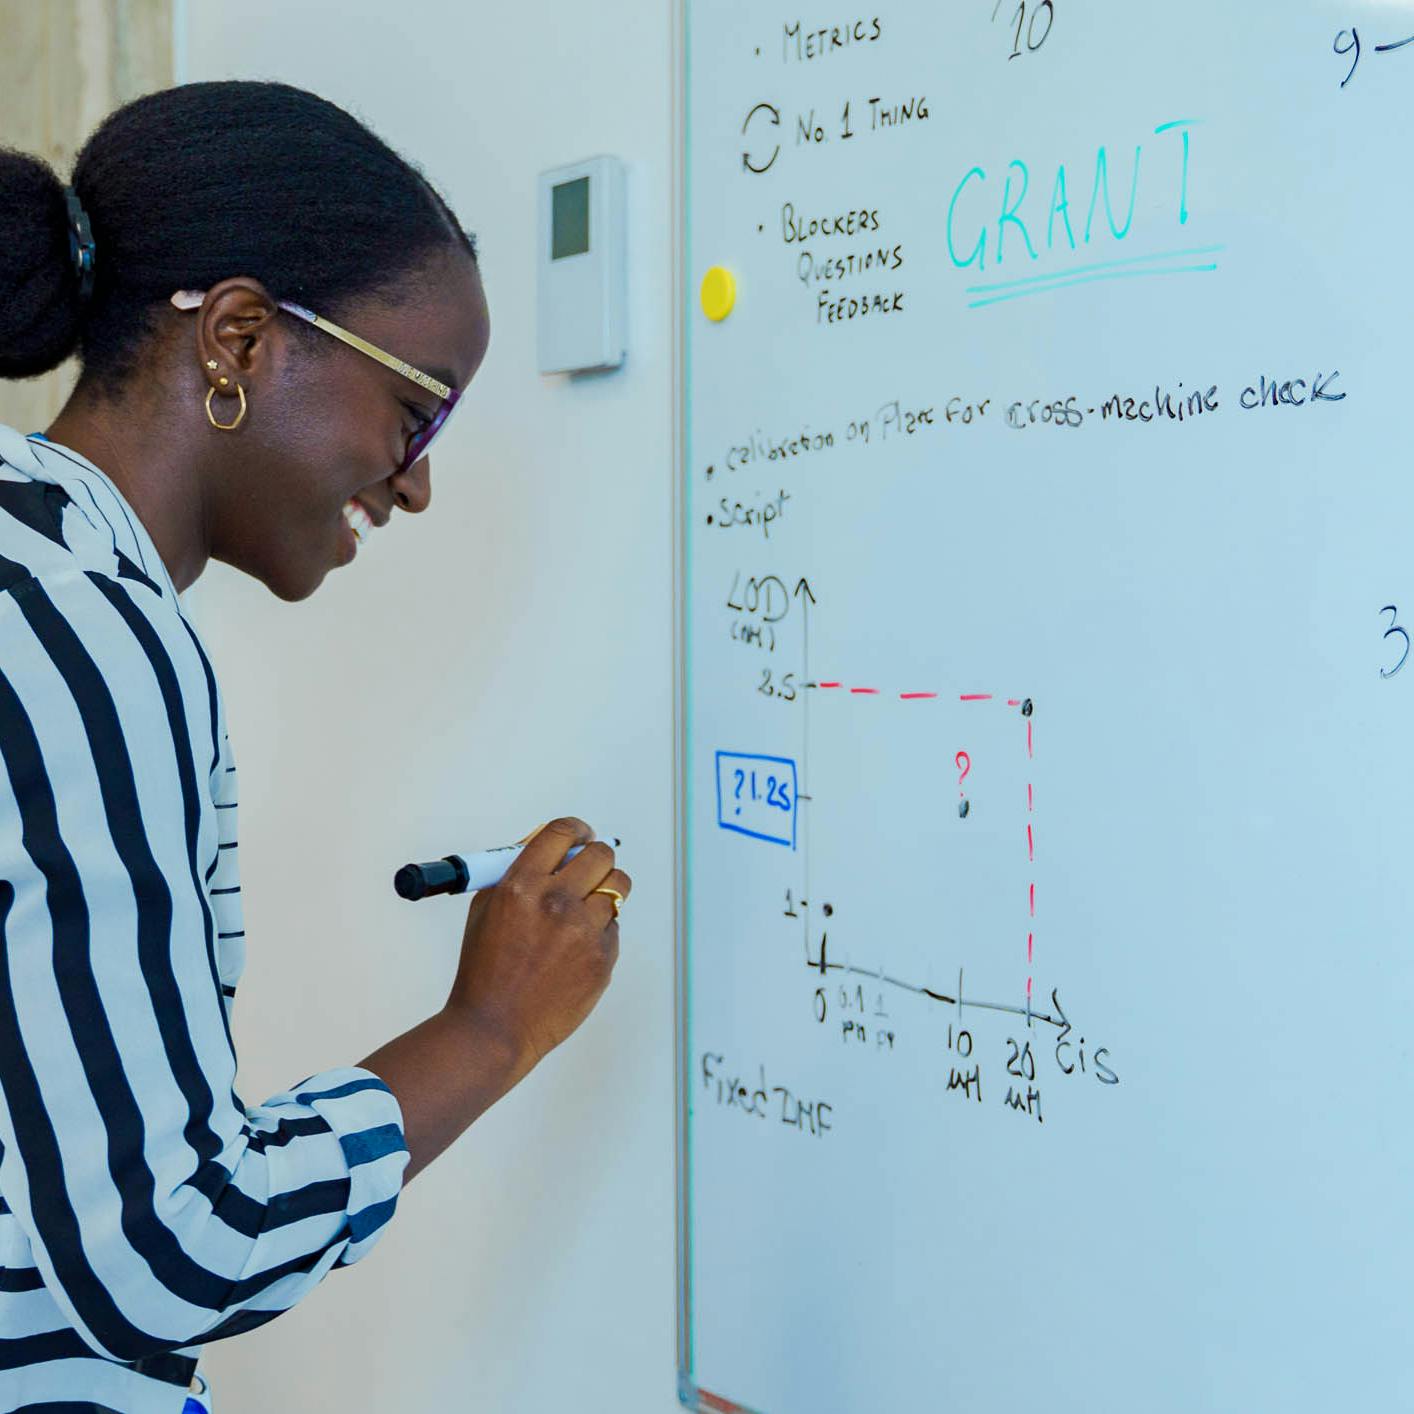 • METRICS
10
9 –
No. 1 THING
GRANT
• BLOCKERS
QUESTIONS
FEEDBACK
• calibration on Plate For cross-machine check
• Script
LOD
(nM)
2.5
?
? 1.25
1
0 0.1 1 10 20 Cis
µM µM
Fixed IMF
3